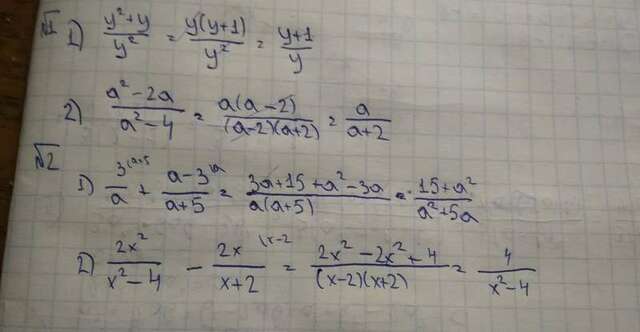 №1 1) (y²+y)/y² = y(y+1)/y² = (y+1)/y
2) (a²-2a)/(a²-4) = a(a-2)/(a-2)(a+2) = a/(a+2)
№2
1) 3^(a+5/a + (a-3^(a)/(a+5) = (3a+15+a²-3a)/a(a+5) = (15+a²)/(a²+5a)
2) 2x²/(x²-4) - 2x^(x-2/(x+2) = (2x²-2x²+4)/(x-2)(x+2) = 4/(x²-4)